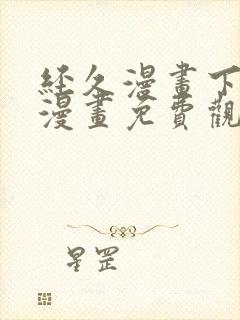 經久漫畫下
漫畫免費觀
星罡